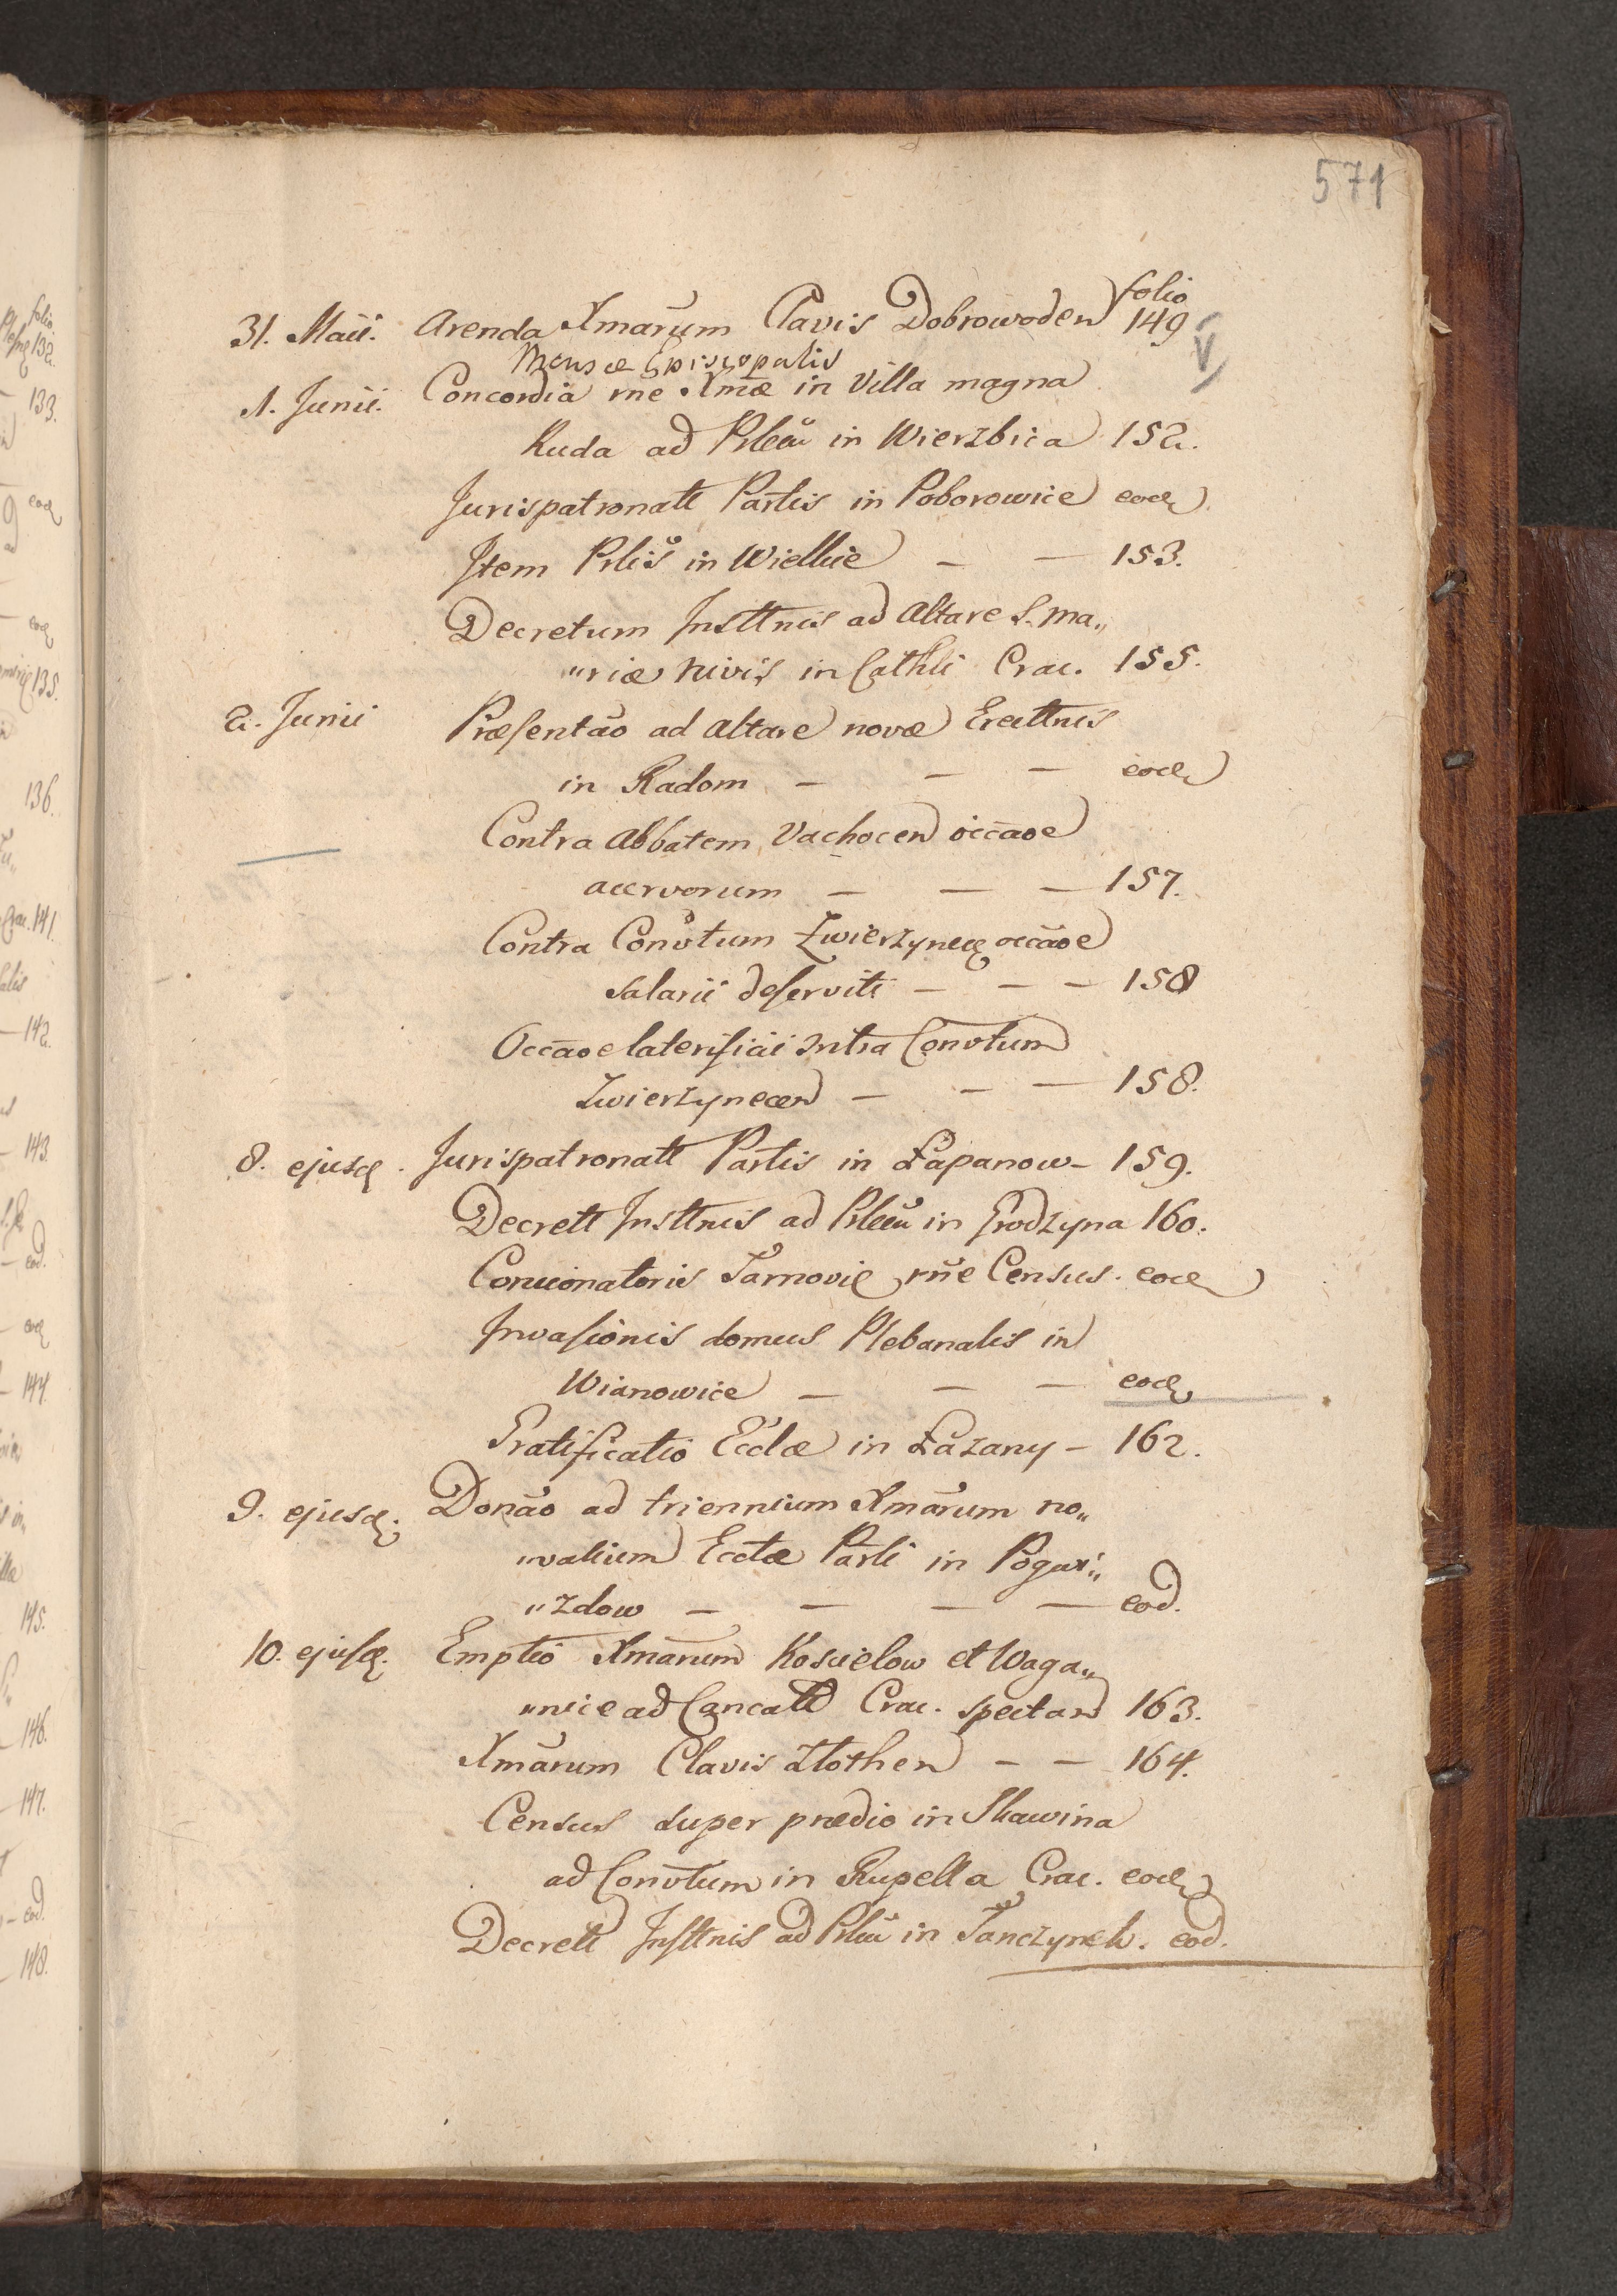 571
folio
31. Maii. Arenda Xmarum Clavis Dobrowoden 149
Mensæ Episcopalis
1. Junii. Concordia rne Xmæ in Villa magna
Ruda ad Plecu in Wierzbica 152.
Jurispatronatt Partis in Poborowice eod
Item Plis in Wielkie — — 153.
Decretum Insttnis ad Altare S. Ma„
„riæ Nivis in Cathli Crac. 155.
2. Junii Præsentao ad Altare novæ Erecttnis
in Radom — — — eod
Contra Abbatem Vachocen occaoe
acervorum — — — 157.
Contra Convtum Zwierzynec occaoe
salarii deserviti — — — 158
Occaoe laterificii intra Convtum
Zwierzynecen — — — 158.
8. ejusd. Jurispatronatt Partis in Łapanow — 159.
Decrett Insttnis ad Plecu in Grodzyna 160.
Concionatoris Tarnovie rne Census. eod
Invasionis domus Plebanalis in
Wianowice — — — eod
Gratificatio Ecclæ in Łazany — 162.
9. ejusd. Donao ad triennium Xmarum no„
„valium Ecclæ Parli in Pogwi„
„zdow — — — — eod.
10. ejusd. Emptio Xmarum Koscielow et Waga„
„nice ad Cancatt Crac. spectan 163.
Xmarum Clavis Złothen — — 164.
Census super prædio in Skawina
ad Convtum in Rupella Crac. eod
Decrett Insttnis ad Plecu in Tanczynek. eod.